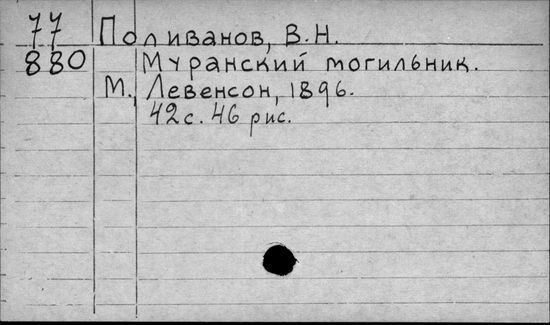 77 Поливанов, В.Н.
880 Муранский могильник.
М., Левенсон, 1896.
42с. 46 рис.